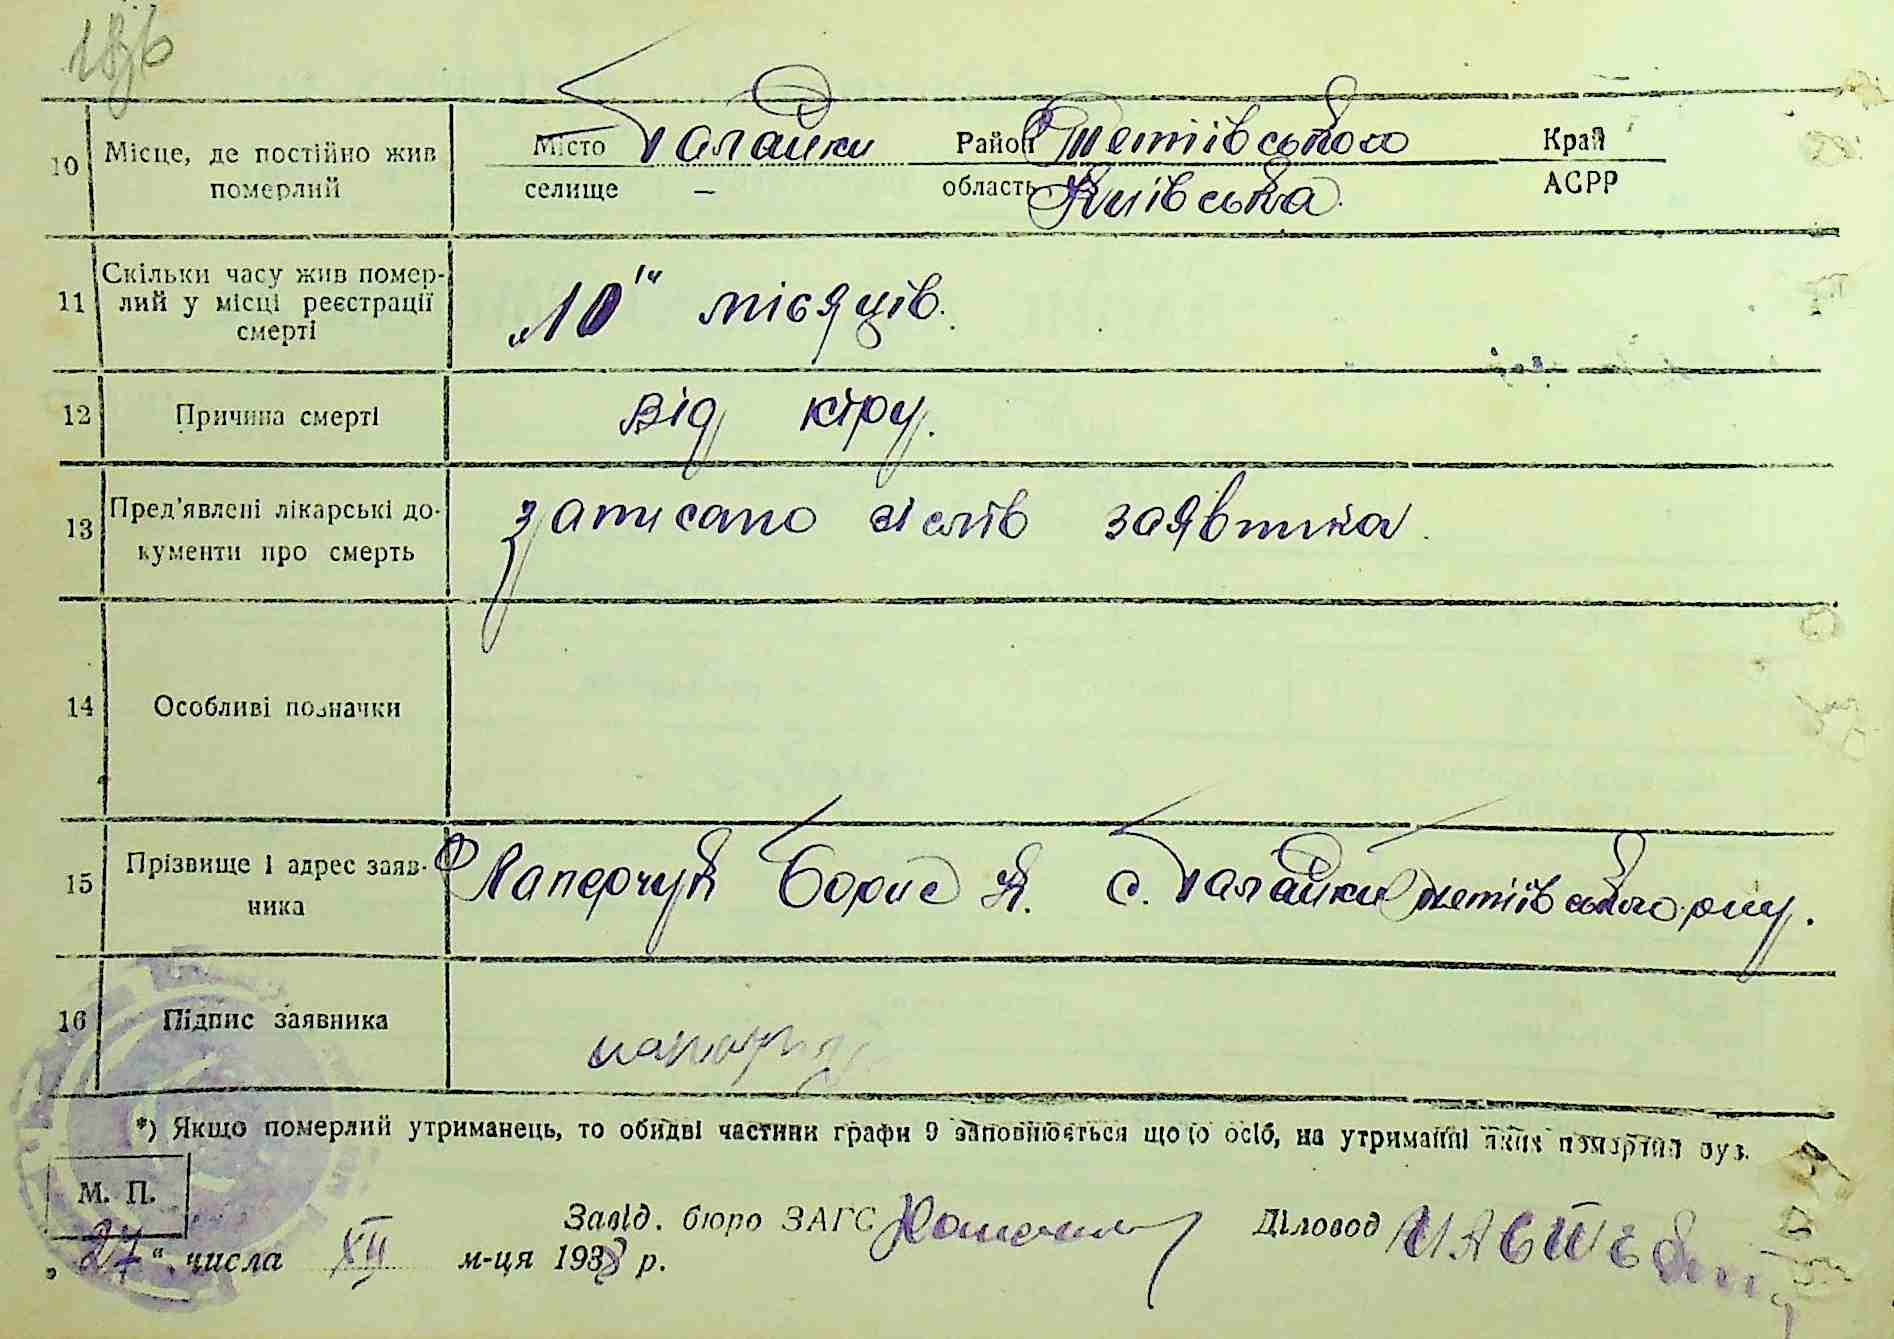 10 Місце, де постійно жив померлий
Місто Галайки Район Тетіївського Край
селище – область Київська АСРР
11 Скільки часу жив помер-
лий у місці реєстрації
смерті
„10" місяців.
12 Причина смерті від кіру.
13 Пред'явлені лікарські до-
кументи про смерть
записано зі слів заявника.
14 Особливі позначки
15 Прізвище і адрес заяв-
ника
Борис Я. с. Галайки Тетіївського р-ну.
16 Підпис заявника
*) Якщо померлий утриманець, то обидві частини графи 9 заповнюється що до осіб, на утриманні яких померлий був.
М. П.
Завід. бюро ЗАГС Діловод
„27" числа XII м-ця 1933 р.